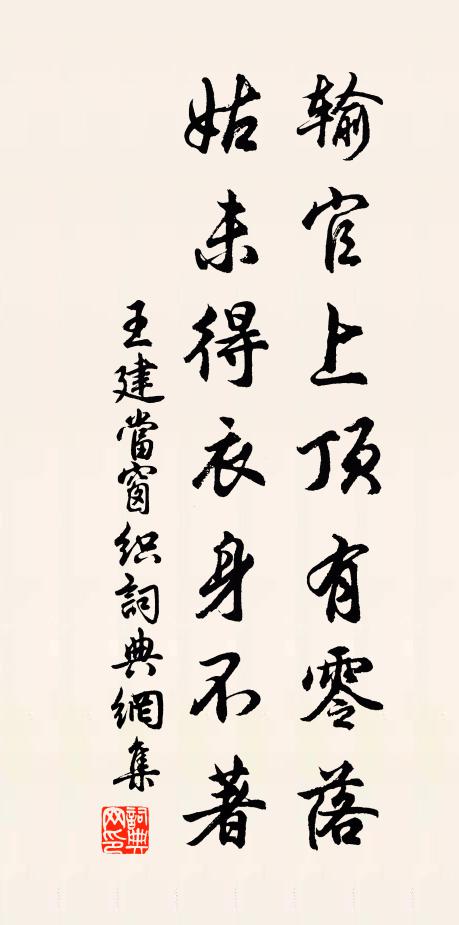 輸官上頂有零落
姑未得衣身不著
王建當窗织詞典網集
詞典網印